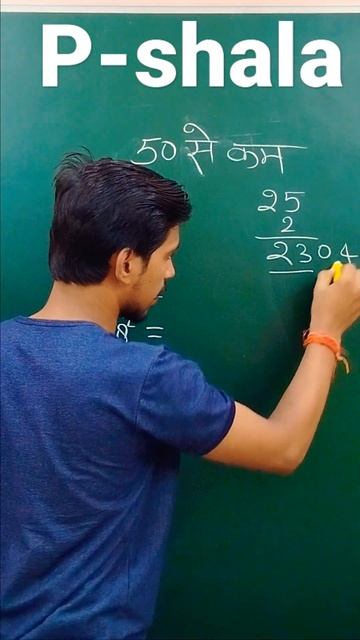 P-shala
50 से कम
25
2
2304
2 =